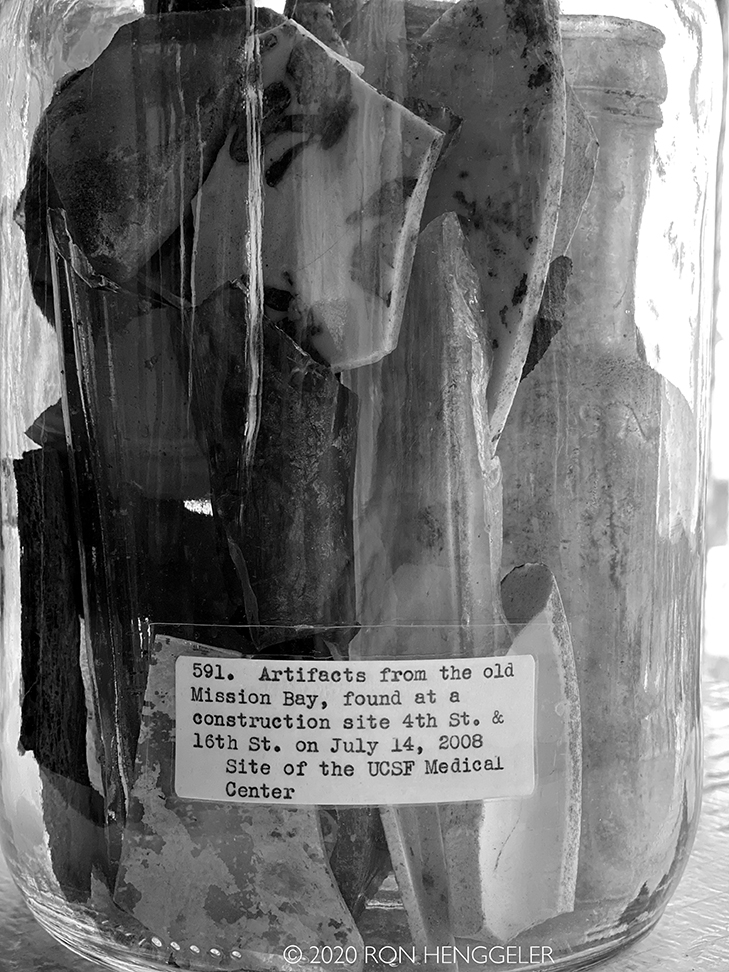 591. Artifacts from the old
Mission Bay, found at a
construction site 4th St. &
16th St. on July 14, 2008
Site of the UCSF Medical
Center
© 2020 RON HENGGELER